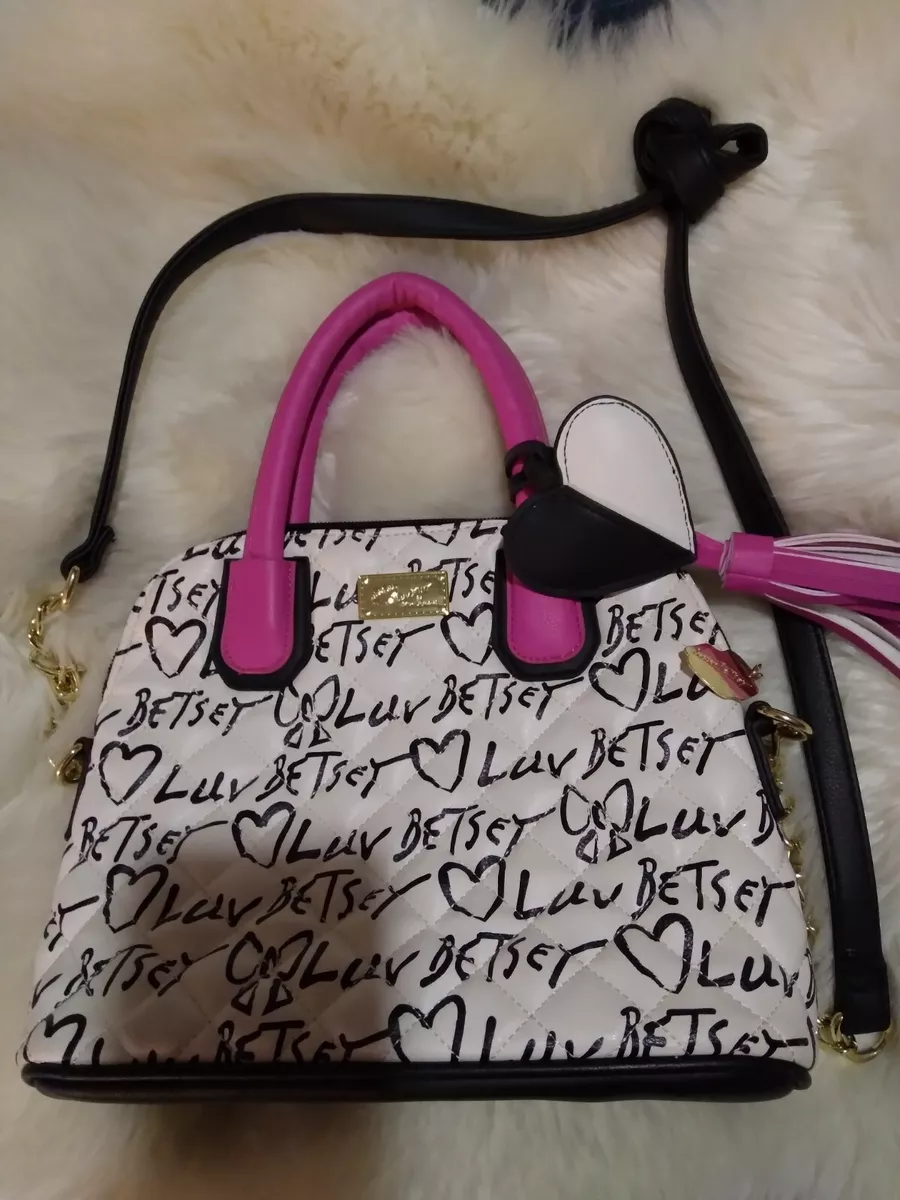 Luv BETSEY L
ETSEY Lu ETSE
BETSEY BETSEY
BETSEY Luv BETSEY Lu
Luv BETSEY Luv BETSEY
BETSEY Luv BETSEY Luv B
EY Luv BETSEY Luv BETSEY
v BETSEY Luv BETSEY Luv
Luv BETSEY Luv BETSEY